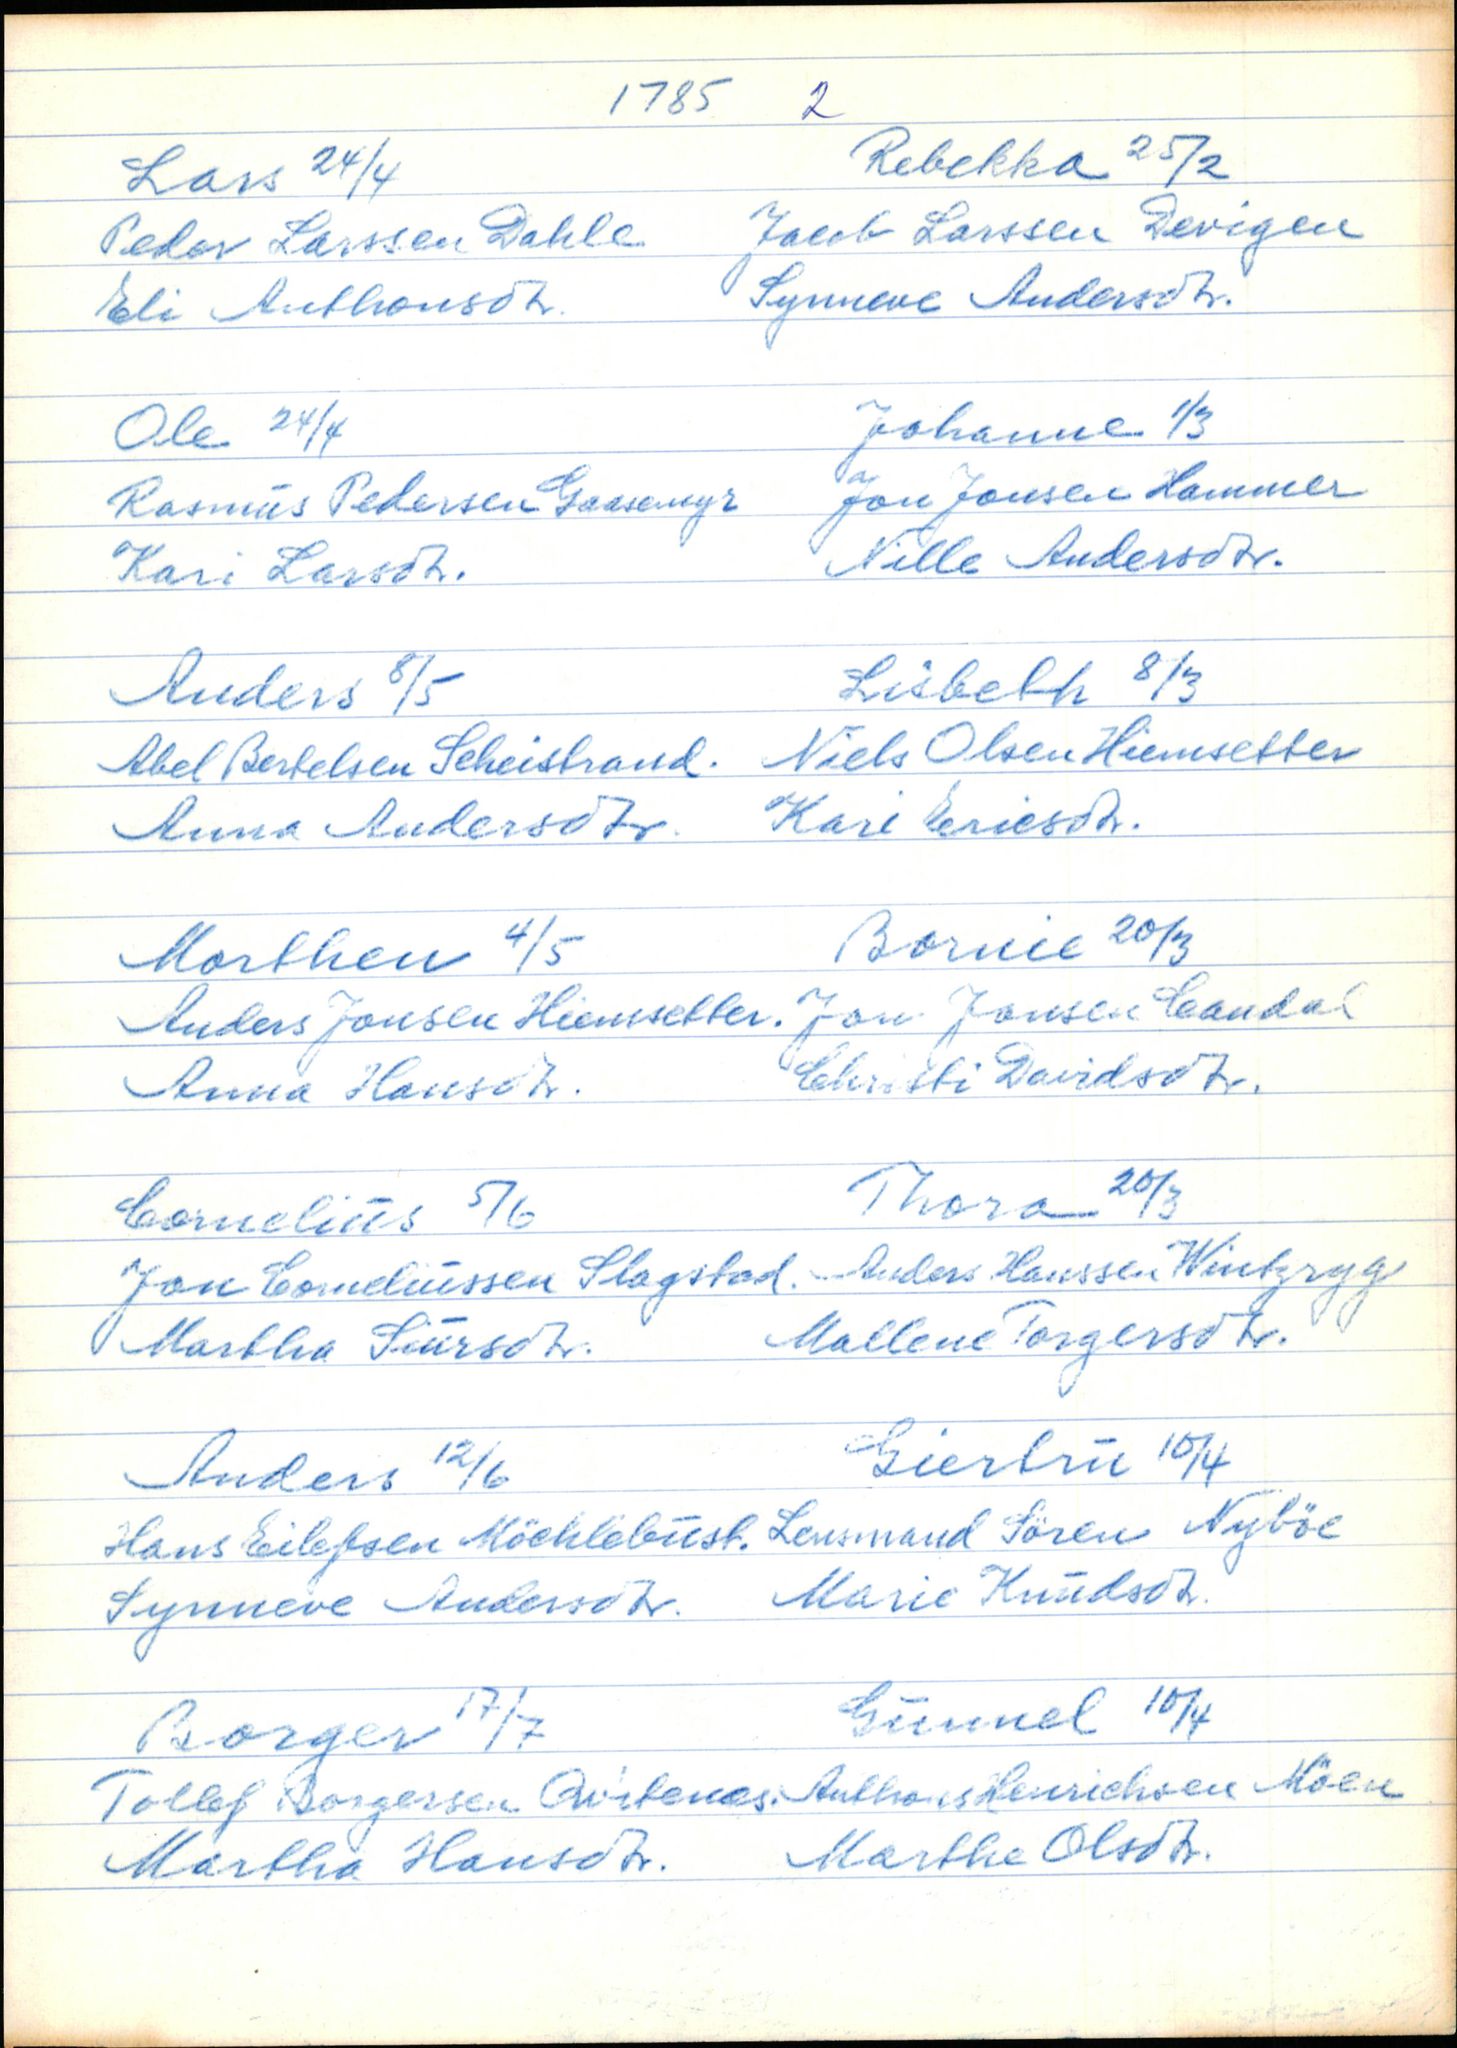 1785 2
Lars 24/4
Peder Larssen Dahle
Eli Anthonsdtr.
Ole 24/4
Rasmus Pedersen Gaasemyr
Kari Larsdtr.
Anders 8/5
Abel Bertelsen Scheistrand.
Anna Andersdtr.
Morthen 4/5
Anders Jonsen Hiemsetter.
Anna Hansdtr.
Cornelius 5/6
Jon Corneliussen Slagstad.
Martha Siursdtr.
Anders 12/6
Hans Eilefsen Möchlebust.
Synneve Andersdtr.
Borger 17/7
Tollef Borgersen
Martha Hansdtr.
Rebekka 25/2
Jacob Larssen Devigen
Synneve Andersdtr.
Johanne 1/3
Jon Jonsen Hammer
Nille Andersdtr.
Lisbeth 8/3
Niels Olsen Hiemsetter
Kari Ericsdtr.
Bornie 20/3
Jon Jonsen Candal
Christi Davidsdtr.
Thora 20/3
Anders Hanssen Wintzryg
Mallene Torgersdtr.
Giertru 10/4
Lensmand Sören Nyböe
Marie Knudsdtr.
Gunnel 10/4
Anthons Henrichsen Möen
Marthe Olsdtr.